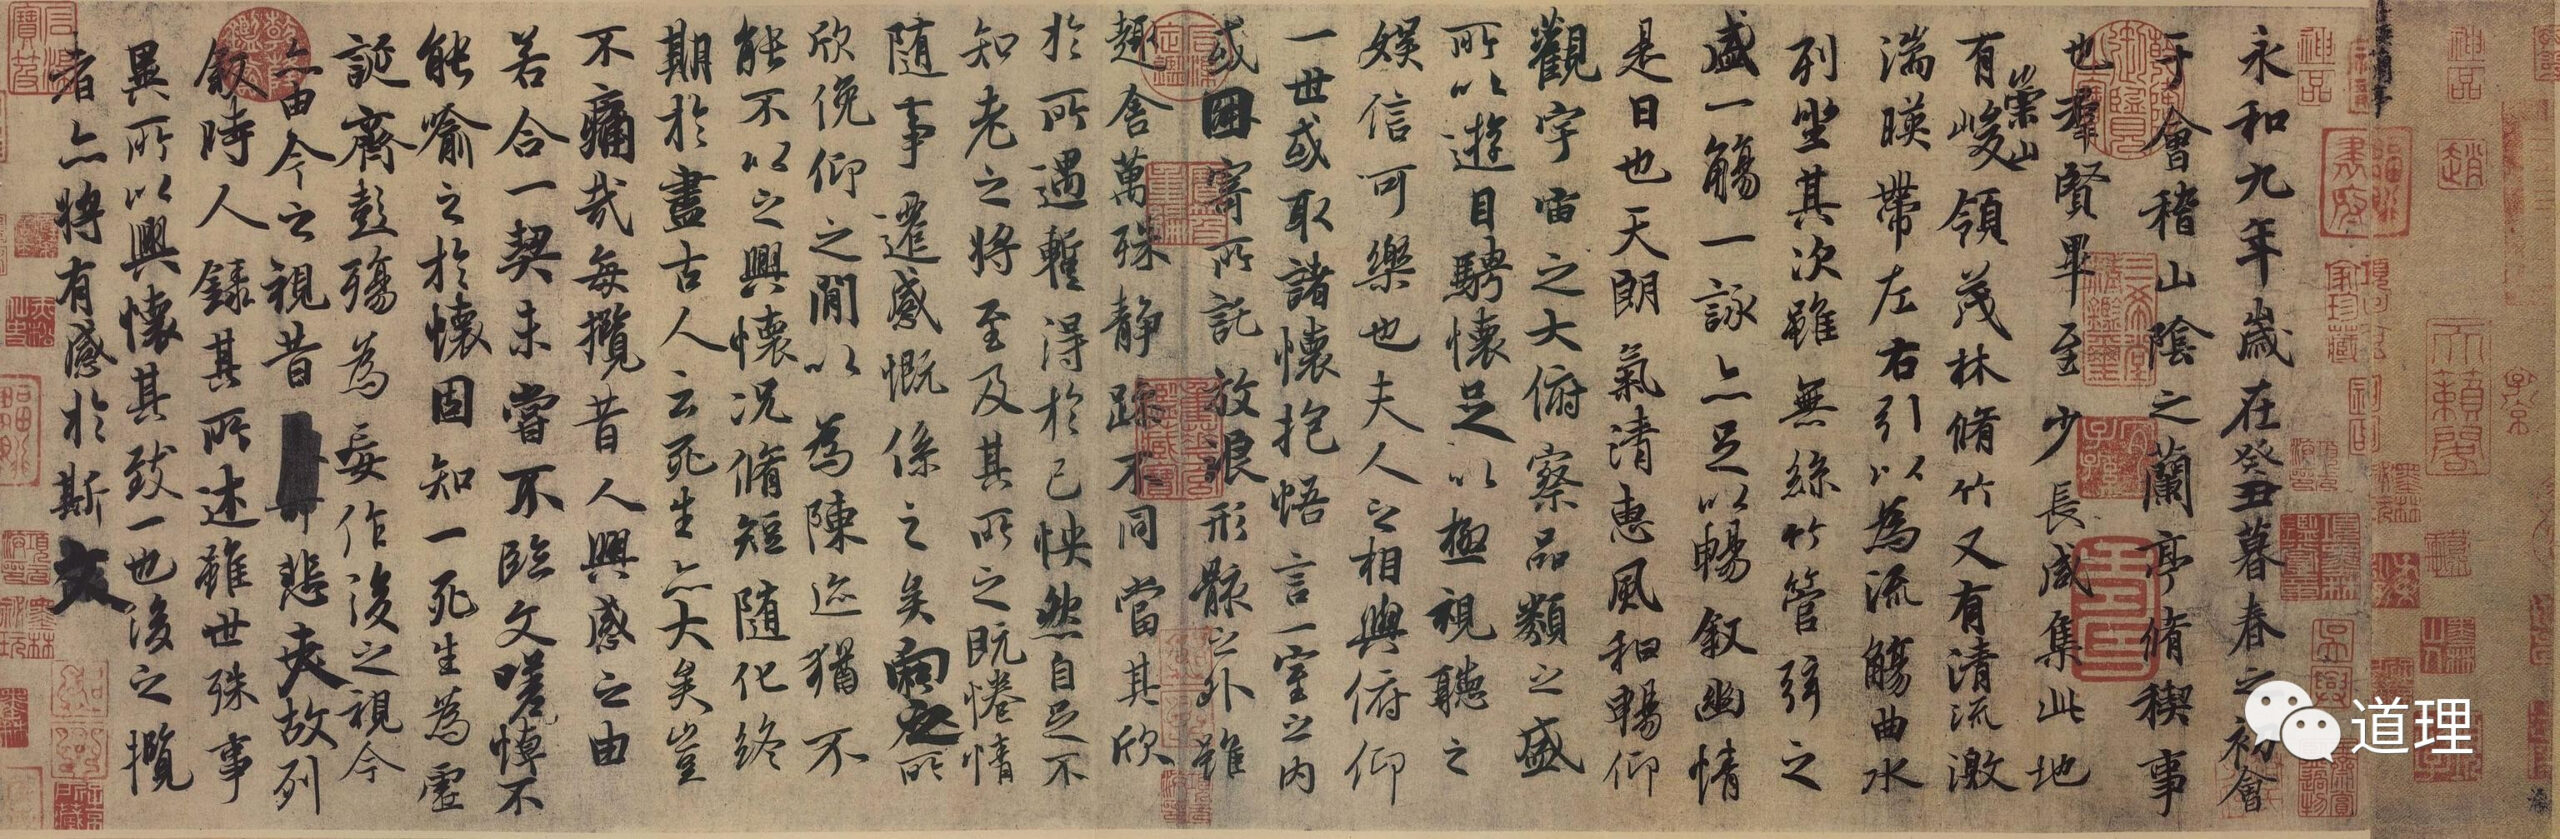 永和九年歲在癸丑暮春之初會
于會稽山陰之蘭亭脩稧事
也羣賢畢至少長咸集此地
有崇山峻領茂林脩竹又有清流激
湍暎帶左右引以為流觴曲水
列坐其次雖無絲竹管弦之
盛一觴一詠亦足以暢叙幽情
是日也天朗氣清惠風和暢仰
觀宇宙之大俯察品類之盛
所以遊目騁懷足以極視聽之
娛信可樂也夫人之相與俯仰
一世或取諸懷抱悟言一室之內
或因寄所託放浪形骸之外雖
趣舍萬殊靜躁不同當其欣
於所遇暫得於己怏然自足不
知老之將至及其所之既惓情
隨事遷感慨係之矣向之所
欣俛仰之閒以為陳迹猶不
能不以之興懷況脩短隨化終
期於盡古人云死生亦大矣豈
不痛哉每攬昔人興感之由
若合一契未嘗不臨文嗟悼不
能喻之於懷固知一死生為虛
誕齊彭殤為妄作後之視今
亦由今之視昔悲夫故列
叙時人錄其所述雖世殊事
異所以興懷其致一也後之攬
者亦將有感於斯文
神品
神品
道理